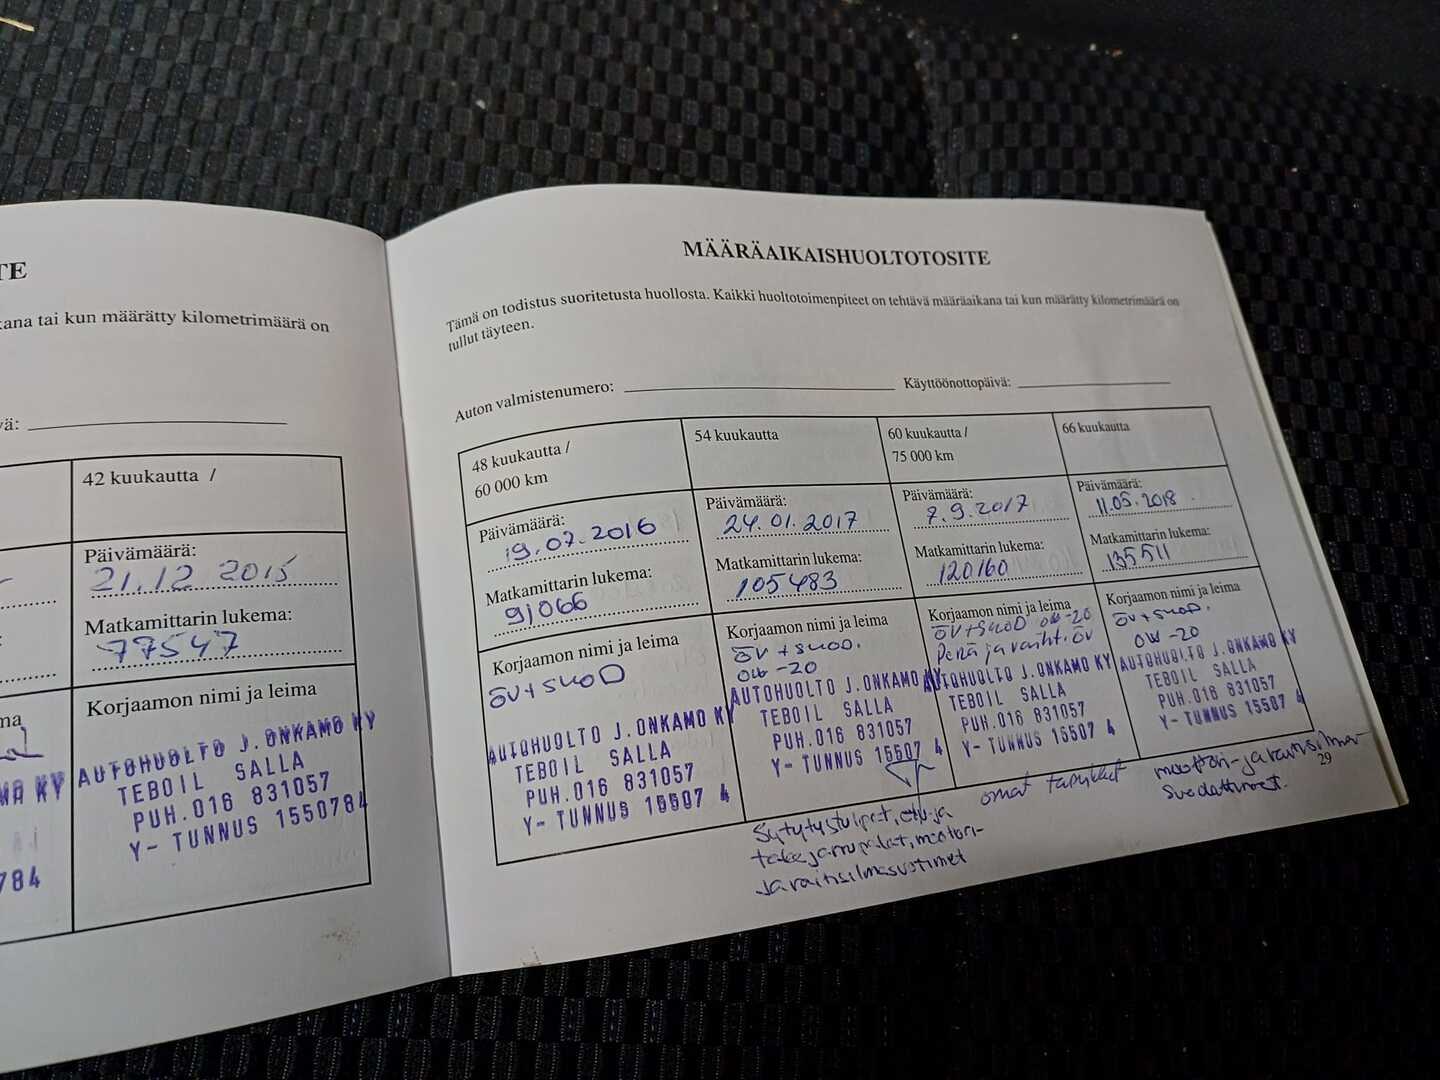 TE
kana tai kun määrätty kilometrimäärä on
vä:
42 kuukautta /
Päivämäärä:
21.12 2015
Matkamittarin lukema:
77547
ma
Korjaamon nimi ja leima
KY
AUTOHUOLTO J.ONKAMO KY
TEBOIL SALLA
PUH.016 831057
Y- TUNNUS 1550784
784
MÄÄRÄAIKAISHUOLTOTOSITE
Tämä on todistus suoritetusta huollosta. Kaikki huoltotoimenpiteet on tehtävä määräaikana tai kun määrätty kilometrimäärä on
tullut täyteen.
Auton valmistenumero: Käyttöönottopäivä:
48 kuukautta /
60 000 km
Päivämäärä:
19.07.2016
Matkamittarin lukema:
91066
Korjaamon nimi ja leima
ÖV+SUOD
AUTOHUOLTO J.ONKAMO KY
TEBOIL SALLA
PUH.016 831057
Y- TUNNUS 15507 4
54 kuukautta
Päivämäärä:
24.01.2017
Matkamittarin lukema:
105483
Korjaamon nimi ja leima
ÖV + SUOD.
OW -20
AUTOHUOLTO J.ONKAMO KY
TEBOIL SALLA
PUH.016 831057
Y- TUNNUS 15507 4
60 kuukautta /
75 000 km
Päivämäärä:
7.9.2017
Matkamittarin lukema:
120160
Korjaamon nimi ja leima
ÖV+SUOD OW-20
Perä ja vaiht. öv
AUTOHUOLTO J.ONKAMO KY
TEBOIL SALLA
PUH.016 831057
Y- TUNNUS 15507 4
66 kuukautta
Päivämäärä:
11.05.2018
Matkamittarin lukema:
135511
Korjaamon nimi ja leima
ÖV+SUOD.
OW -20
AUTOHUOLTO J.ONKAMO KY
TEBOIL SALLA
PUH.016 831057
Y- TUNNUS 15507 4
Sytytystulpat, etu-ja
takajarrupalat, moottori-
ja raitisilmasuotimet
omat tarvikkeet
moottori-ja raitisilma-
suodattimet.
29